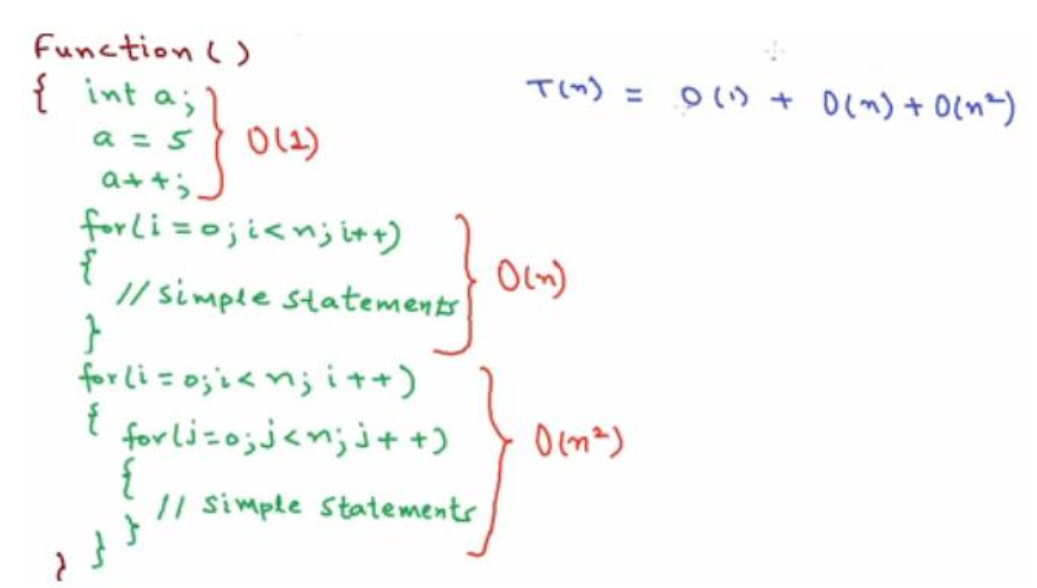 Function ( )
{ int a;
a = 5
a++;
O(1)
for(i = 0; i<n; i++)
{
// simple statements
}
O(n)
for(i = 0; i < n; i++)
{
for(j=0; j<n; j++)
{
// simple statements
}
}
}
O(n²)
T(n) = O(1) + O(n) + O(n²)